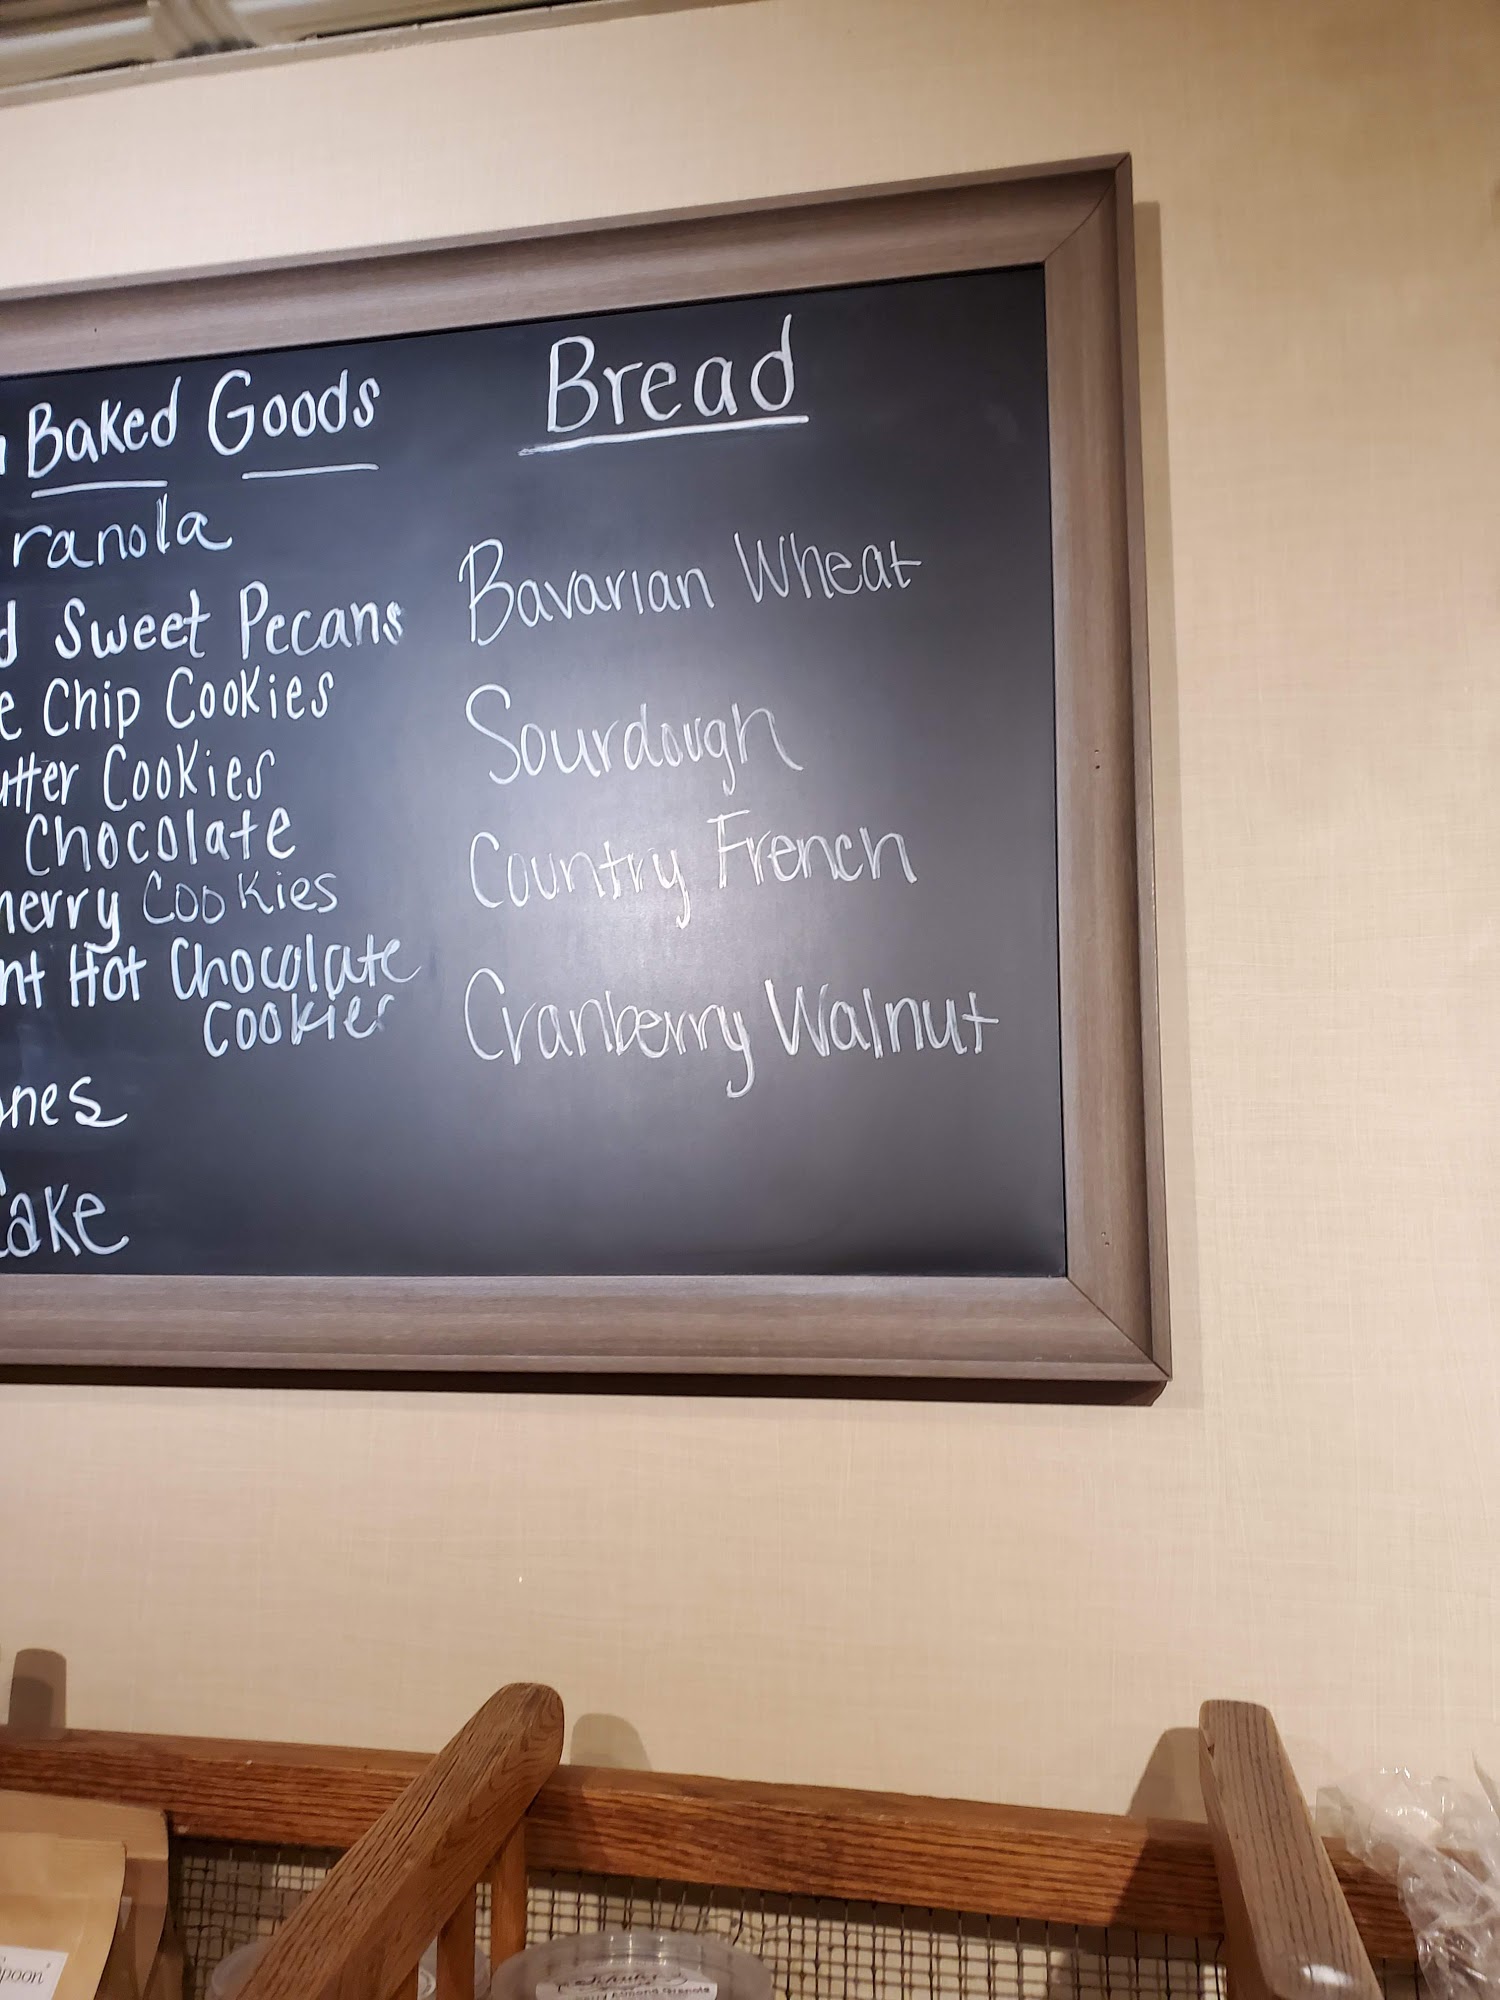 Baked Goods
ranola
Sweet Pecans
Chip Cookies
utter Cookies
Chocolate
herry Cookies
nt Hot Chocolate
Cookies
ones
Cake
Bread
Bavarian Wheat
Sourdough
Country French
Cranberry Walnut
poon